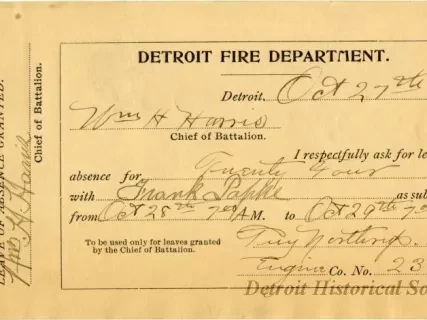 LEAVE OF ABSENCE GRANTED.
Wm H Harris
Chief of Battalion.
DETROIT FIRE DEPARTMENT.
Detroit, Oct 27th
Wm H Harris
Chief of Battalion.
I respectfully ask for le
absence for Twenty Four
with Frank Papke as sub
from Oct 28th 7 30 A.M. to Oct 29th 7
To be used only for leaves granted
by the Chief of Battalion.
Engine Co. No. 23
Detroit Historical So